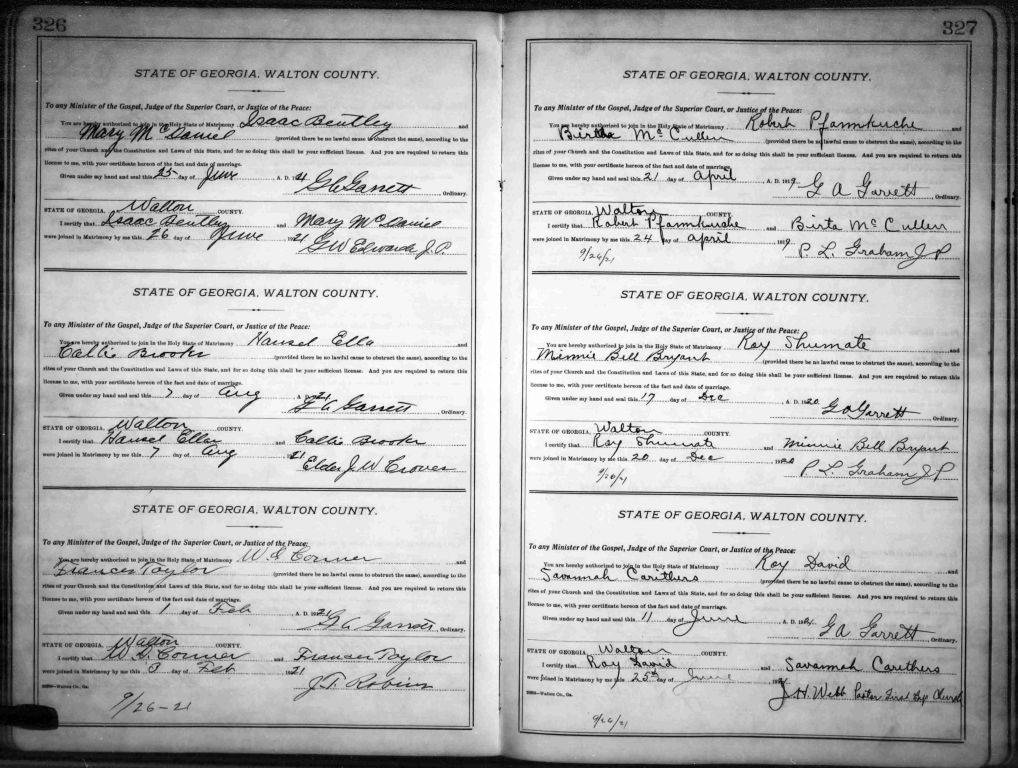 326
STATE OF GEORGIA, WALTON COUNTY.
To any Minister of the Gospel, Judge of the Superior Court, or Justice of the Peace:
You are hereby authorized to join in the Holy State of Matrimony Isaac Bentley and
Mary McDaniel (provided there be no lawful cause to obstruct the same), according to the
rites of your Church and the Constitution and Laws of this State, and for so doing this shall be your sufficient license. And you are required to return this
license to me, with your certificate hereon of the fact and date of marriage.
Given under my hand and seal this 25 day of June A. D. 1921 G A Garrett Ordinary.
STATE OF GEORGIA, Walton COUNTY.
I certify that Isaac Bentley and Mary McDaniel
were joined in Matrimony by me this 26 day of June 1921 GW Edwards J.P.
STATE OF GEORGIA, WALTON COUNTY.
To any Minister of the Gospel, Judge of the Superior Court, or Justice of the Peace:
You are hereby authorized to join in the Holy State of Matrimony Hansel Ella and
Callie Brooks (provided there be no lawful cause to obstruct the same), according to the
rites of your Church and the Constitution and Laws of this State, and for so doing this shall be your sufficient license. And you are required to return this
license to me, with your certificate hereon of the fact and date of marriage.
Given under my hand and seal this 7 day of Aug A. D. 1921 G A Garrett Ordinary.
STATE OF GEORGIA, Walton COUNTY.
I certify that Hansel Ellar and Callie Brooks
were joined in Matrimony by me this 7 day of Aug 1921 Elder J. W.
STATE OF GEORGIA, WALTON COUNTY.
To any Minister of the Gospel, Judge of the Superior Court, or Justice of the Peace:
You are hereby authorized to join in the Holy State of Matrimony Conner and
Frances Taylor (provided there be no lawful cause to obstruct the same), according to the
rites of your Church and the Constitution and Laws of this State, and for so doing this shall be your sufficient license. And you are required to return this
license to me, with your certificate hereon of the fact and date of marriage.
Given under my hand and seal this 1 day of Feb A. D. 1921 G A Garrett Ordinary.
STATE OF GEORGIA, Walton COUNTY.
I certify that Conner and Frances Taylor
were joined in Matrimony by me this 3 day of Feb 1921 J. T. Robins
Walton Co., Ga.
9/26-21
327
STATE OF GEORGIA, WALTON COUNTY.
To any Minister of the Gospel, Judge of the Superior Court, or Justice of the Peace:
You are hereby authorized to join in the Holy State of Matrimony Robert Pfannkuche and
Birtha McCullen (provided there be no lawful cause to obstruct the same), according to the
rites of your Church and the Constitution and Laws of this State, and for so doing this shall be your sufficient license. And you are required to return this
license to me, with your certificate hereon of the fact and date of marriage.
Given under my hand and seal this 21 day of April A. D. 1919 G A Garrett Ordinary.
STATE OF GEORGIA, Walton COUNTY.
I certify that Robert Pfannkuche and Birta McCullen
were joined in Matrimony by me this 24 day of April 1919 P. L. Graham J P
9/26/21
STATE OF GEORGIA, WALTON COUNTY.
To any Minister of the Gospel, Judge of the Superior Court, or Justice of the Peace:
You are hereby authorized to join in the Holy State of Matrimony Roy Shumate and
Minnie Bell Bryant (provided there be no lawful cause to obstruct the same), according to the
rites of your Church and the Constitution and Laws of this State, and for so doing this shall be your sufficient license. And you are required to return this
license to me, with your certificate hereon of the fact and date of marriage.
Given under my hand and seal this 17 day of Dec A. D. 1920 G A Garrett Ordinary.
STATE OF GEORGIA, Walton COUNTY.
I certify that Roy Shumate and Minnie Bell Bryant
were joined in Matrimony by me this 20 day of Dec 1920 P L Graham J P
9/26/21
STATE OF GEORGIA, WALTON COUNTY.
To any Minister of the Gospel, Judge of the Superior Court, or Justice of the Peace:
You are hereby authorized to join in the Holy State of Matrimony Roy David and
Savannah Carithers (provided there be no lawful cause to obstruct the same), according to the
rites of your Church and the Constitution and Laws of this State, and for so doing this shall be your sufficient license. And you are required to return this
license to me, with your certificate hereon of the fact and date of marriage.
Given under my hand and seal this 11 day of June A. D. 1921 G A Garrett Ordinary.
STATE OF GEORGIA, Walton COUNTY.
I certify that Roy David and Savannah Carethers
were joined in Matrimony by me this 25th day of June 1921 J. H. Webb Pastor First Bap Church
Walton Co., Ga.
9/26/21